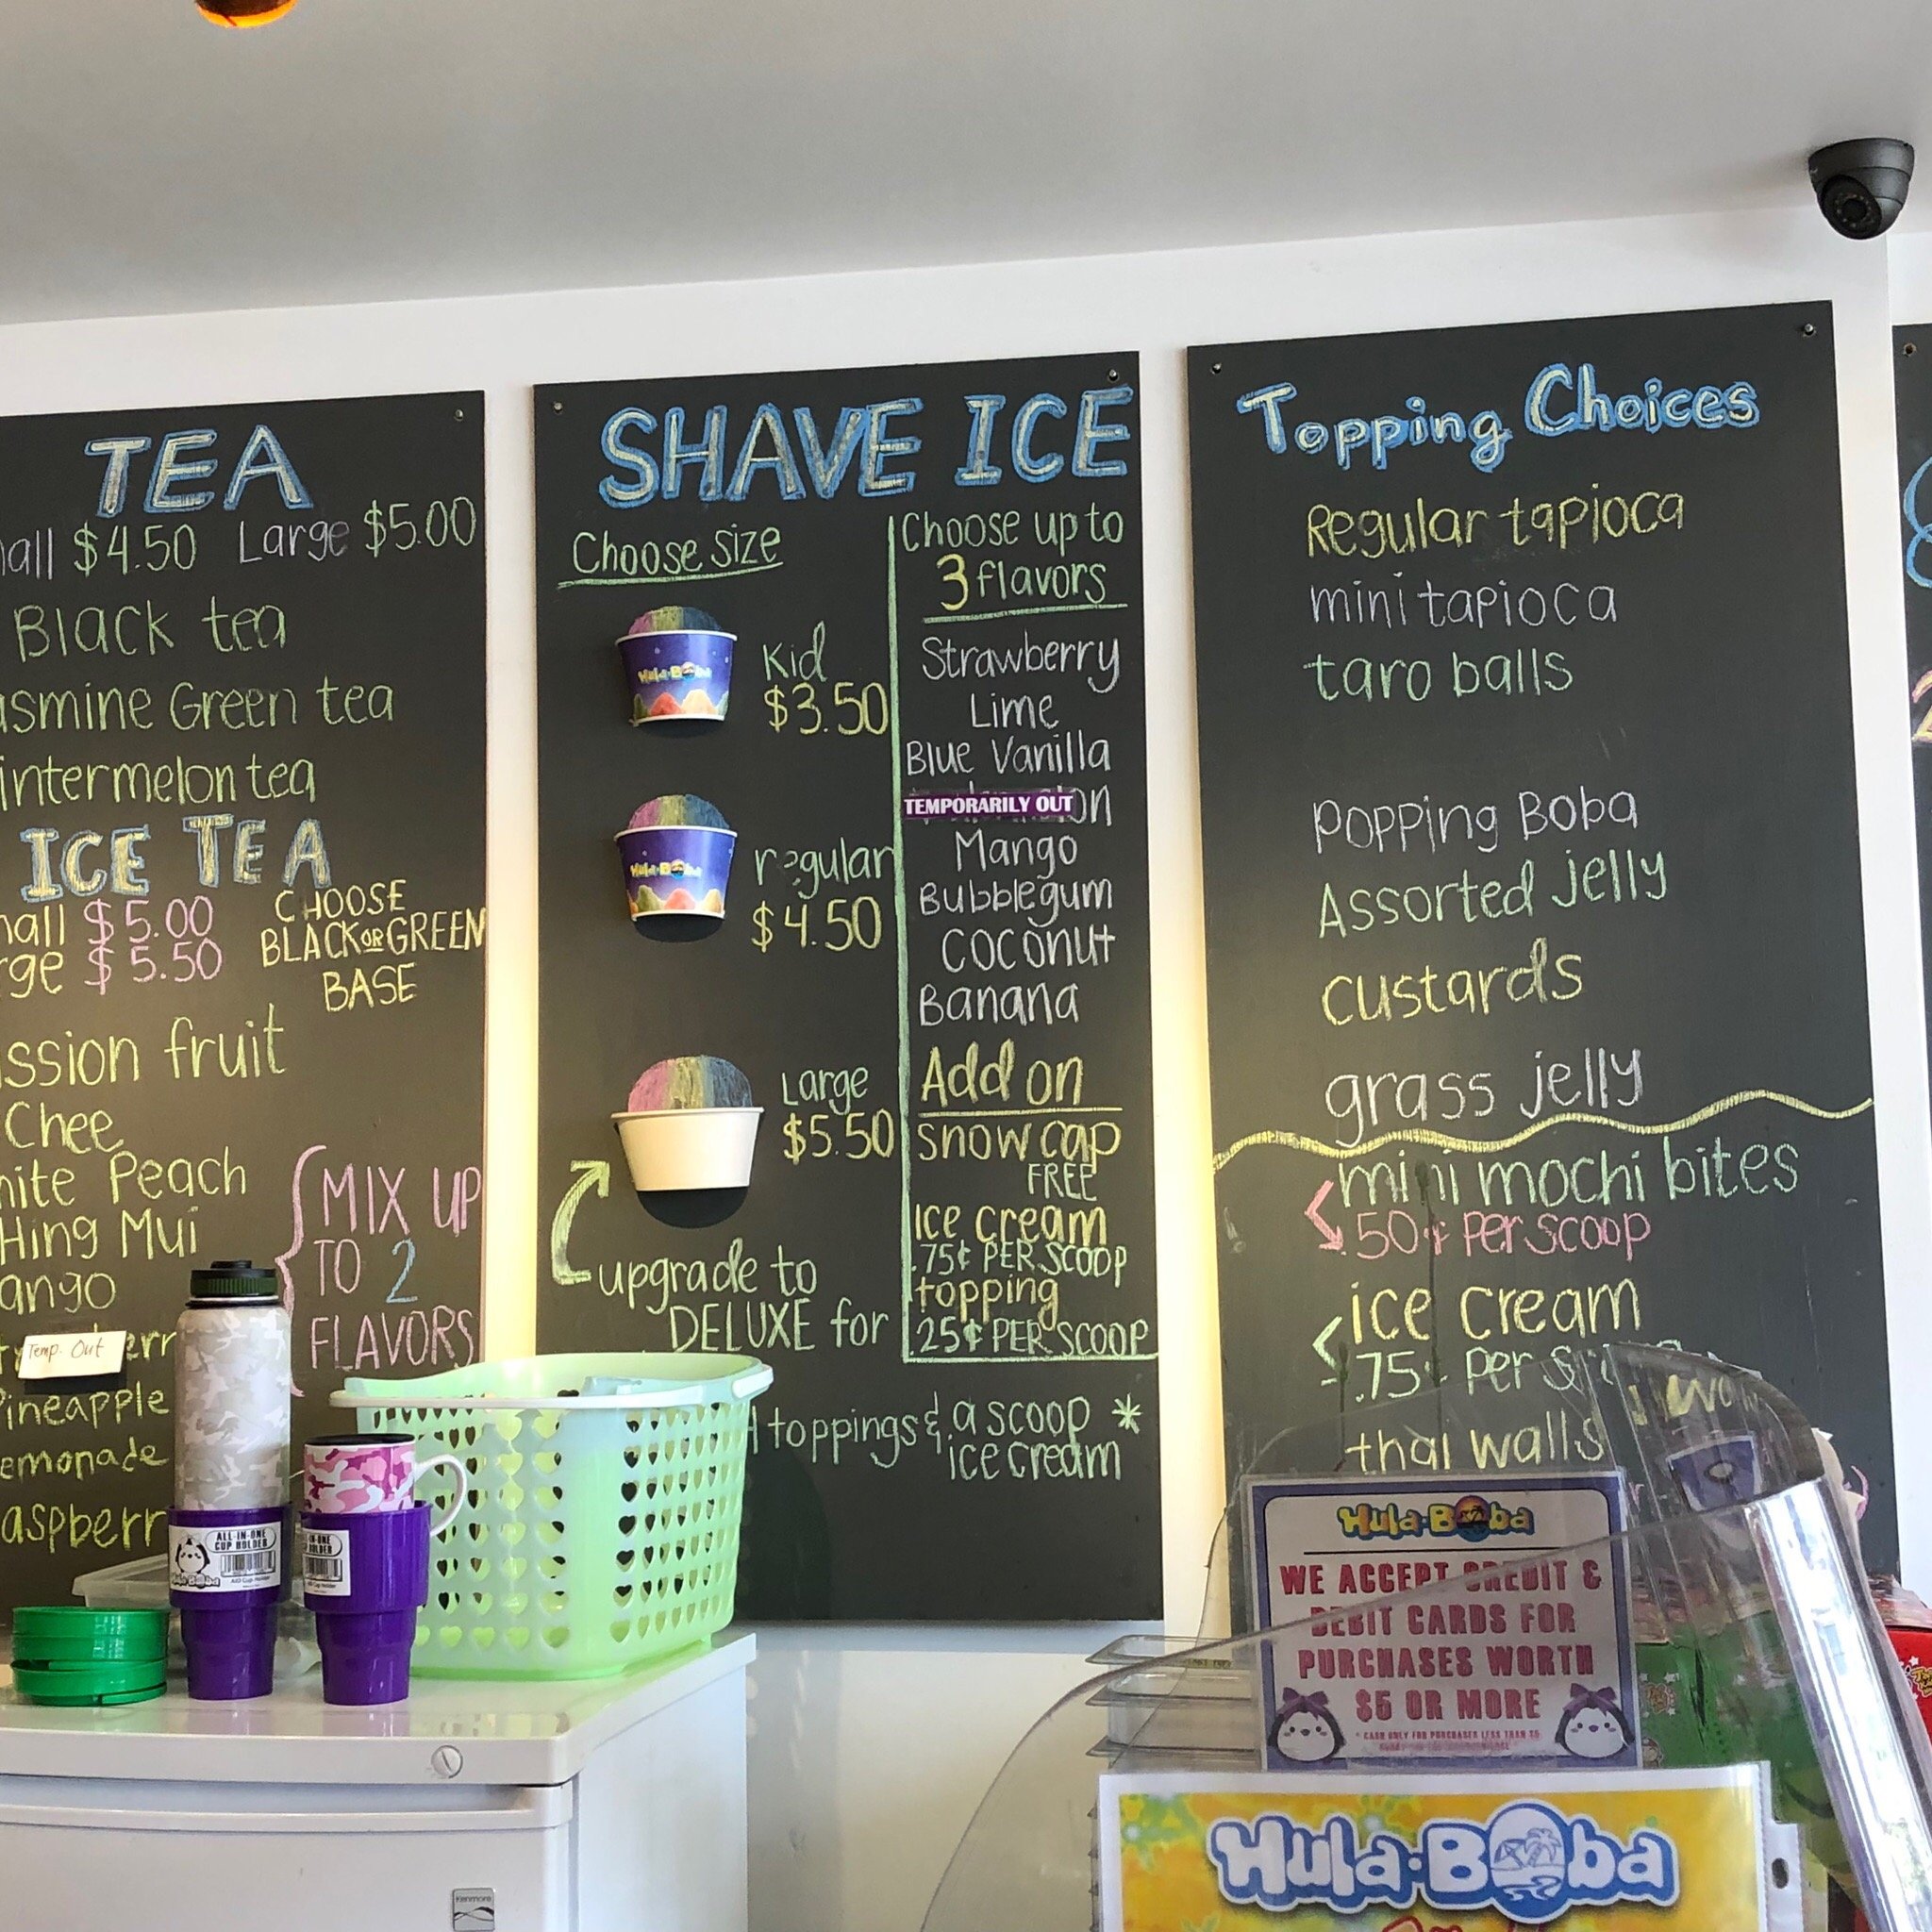 TEA
$4.50 Large $5.00
Black tea
Green tea
tea
ICE TEA
$5.00
$5.50
CHOOSE
BLACK OR GREEN
BASE
fruit
Chee
Peach
Hing Mui
Temp. Out
MIX UP
TO 2
FLAVORS
ALL-IN-ONE
CUP HOLDER
Hula-Boba
SHAVE ICE
Choose size
Kid
$3.50
Hula-Boba
regular
$4.50
Hula-Boba
Large
$5.50
upgrade to
DELUXE for
toppings & a scoop *
ice cream
Choose up to
3 flavors
Strawberry
Lime
Blue Vanilla
TEMPORARILY OUT
Mango
Bubblegum
Coconut
Banana
Add on
snow cap
FREE
Ice cream
.75¢ PER SCOOP
topping
.25¢ PER SCOOP
Topping Choices
Regular tapioca
mini tapioca
taro balls
popping Boba
Assorted jelly
custards
grass jelly
mini mochi bites
.50¢ per scoop
ice cream
.75¢ per
Hula-Boba
WE ACCEPT CREDIT &
DEBIT CARDS FOR
PURCHASES WORTH
$5 OR MORE
* CASH ONLY FOR PURCHASES LESS THAN $5
Hula-Boba
Kenmore